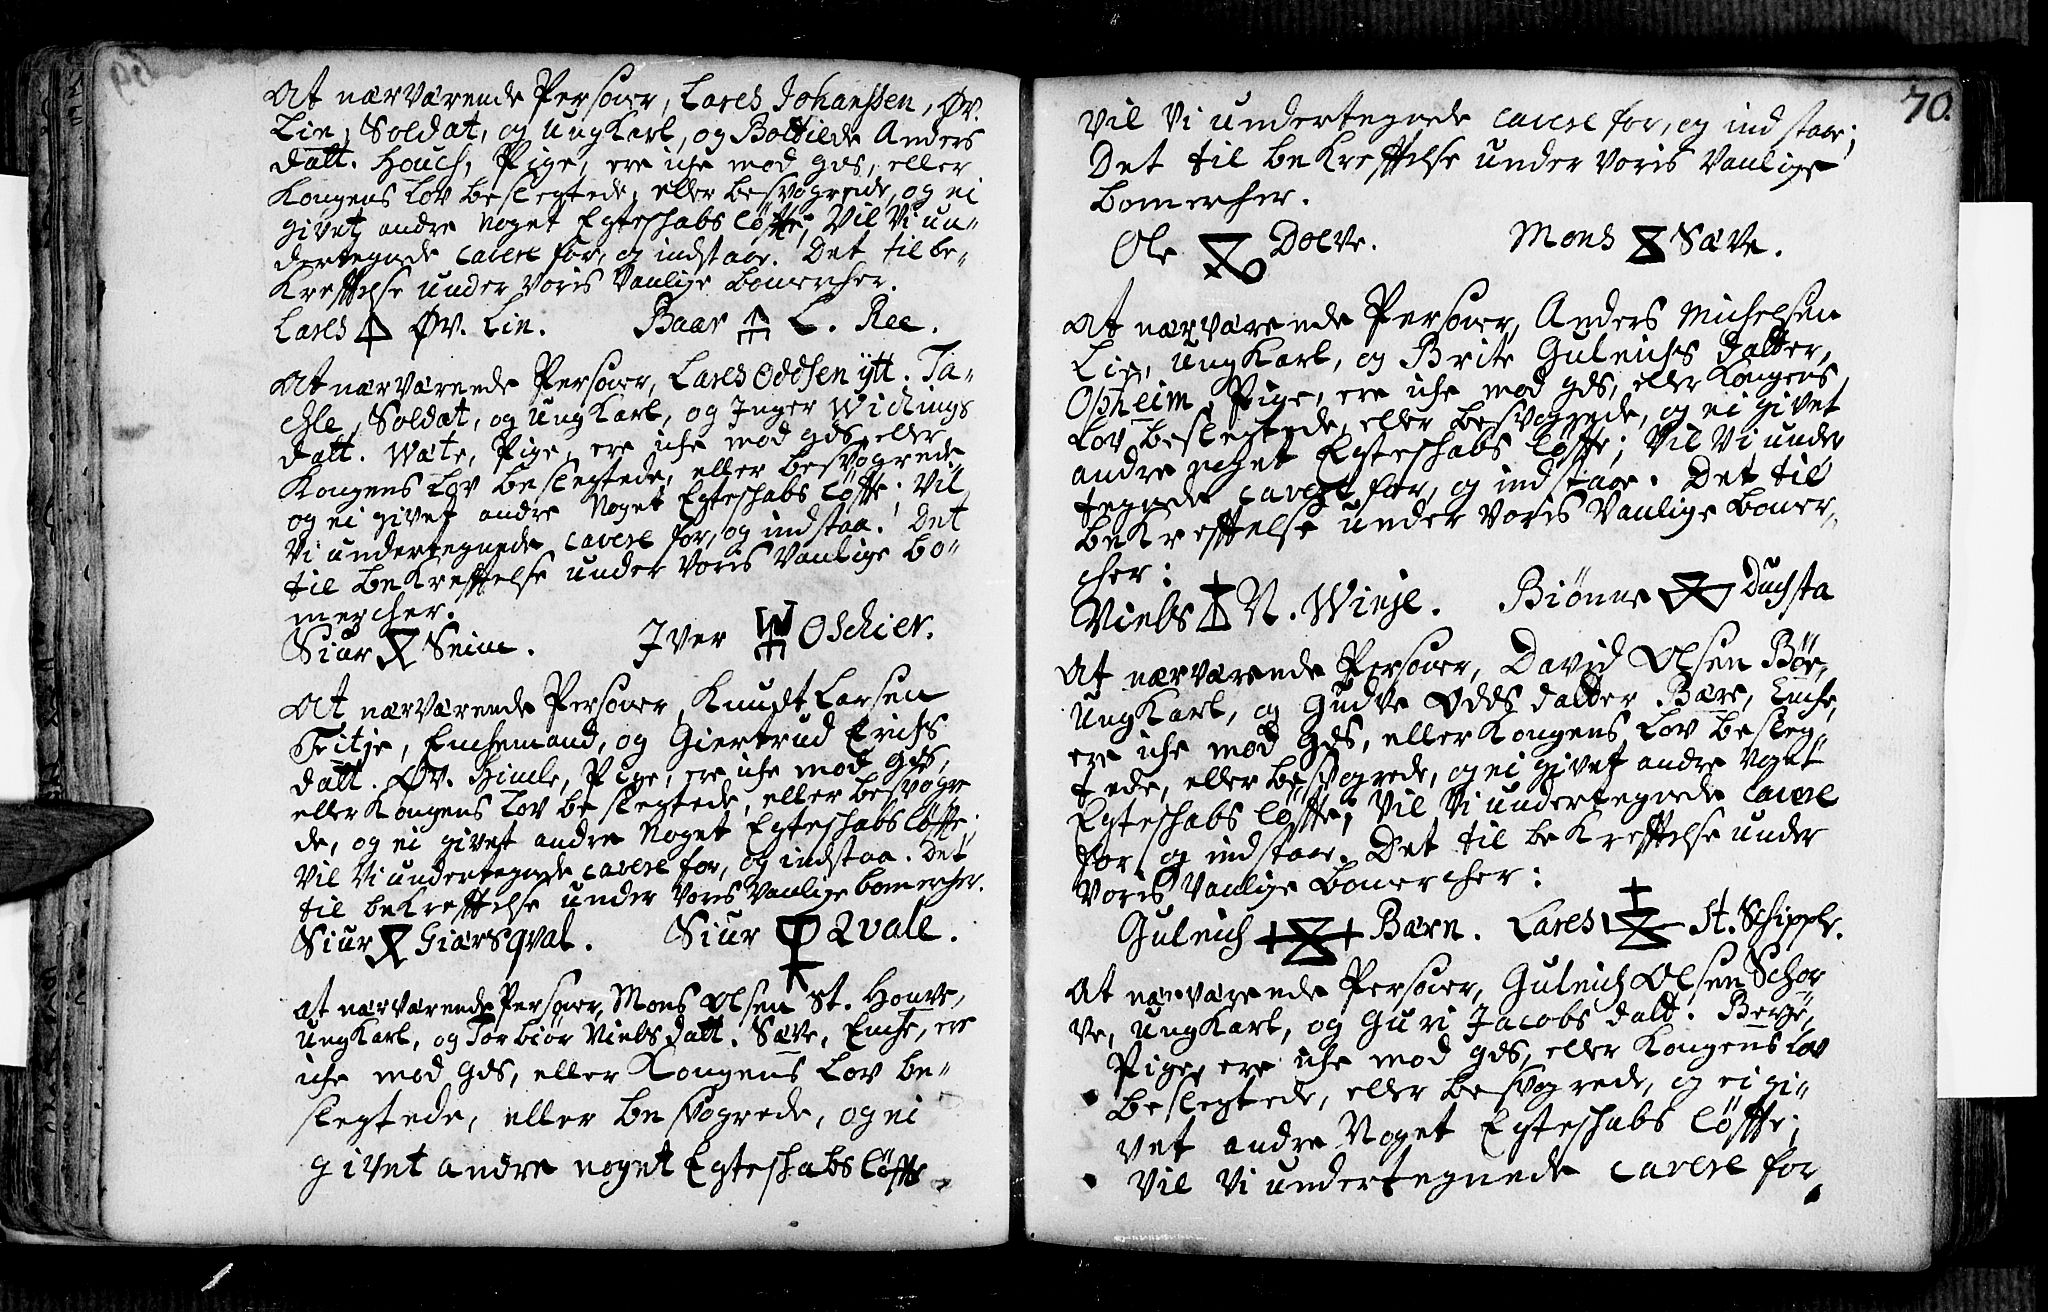 At nærværende Personer, Lares Johanssen, Øv.
Lie, Soldat, og UngKarl, og Boltilde Anders
datt. Houch, Pige, ere iche mod Gds, eller
Kongens Lov beslegtede, eller besvogrede, og ei
givet andre noget Egteschabs løffte; Vil Vi un-
dertegnede cavere for, og indstaae. Det til be-
Kreffelse under Voris Vanlige bomercher.
Lares Øv. Lie. Baar L. Ree.
At nærværende Personer, Lares Oddsen ytt. Ta-
chle, Soldat, og UngKarl, og Inger Wichings
datt. Wæte, Pige, ere iche mod Gds, eller
Kongens Lov beslegtede, eller besvogrede
og ei givet andre Noget Egteschabs løffte; Vil
Vi undertegnede cavere for, og indstaa. Det
til beKreffelse under Voris Vanlige bo-
mercher.
Siur Seim. Iver W Oschier.
At nærværende Personer, Knudt Larsen
Teitje, Enchemand, og Giertrud Erichs
datt. Øv. Himle, Pige, ere iche mod Gds,
eller Kongens Lov beslegtede, eller besvogre
de, og ei givet andre Noget Egteschabs løffte;
Vil Vi undertegnede cavere for, og indstaa. Det
til beKreffelse under Voris Vanlige bomercher.
Siur Giærsqval. Siur Qvale.
At nærværende Personer, Mons Olsen St. Houve,
UngKarl, og Torbiør Nielsdatt. Sæve, Enche, ere
iche mod Gds, eller Kongens Lov be-
slegtede, eller besvogrede, og ei
givet andre noget Egteschabs løffte
70.
Vil Vi undertegnede cavere for, og indstaae;
Det til beKreffelse under Voris Vanlige
bomercher.
Ole Dolve. Mons Sæve.
At nærværende Personer, Anders Michelsen
Lie, UngKarl, og Brite Guleichs datter,
Opheim, Pige, ere iche mod Gds, eller Kongens
Lov beslegtede, eller besvogrede, og ei givet
andre noget Egteschabs løffte; Vil Vi under
tegnede cavere for, og indstaae. Det til
beKreffelse under Voris Vanlige bomer,
cher:
Niels N. Winje. Biønne Duchsta
At nærværende Personer, David Olsen Bøe,
UngKarl, og Gudve Odds datter Bære, Enche,
ere iche mod Gds, eller Kongens Lov besleg-
tede, eller besvogrede, og ei givet andre noget
Egteschabs løffte; Vil Vi undertegnede cavere
for, og indstaae. Det til beKreffelse under
Voris Vanlige bomercher:
Guleich Bærn. Lares St. Schiple.
At nærværende Personer, Guleich Olsen Schor
ve, UngKarl, og Guri Jacobs datt. Berge,
Pige, ere iche mod Gds, eller Kongens Lov
beslegtede, eller besvogrede, og ei gi-
vet andre Noget Egteschabs løffte;
Vil Vi undertegnede cavere for,